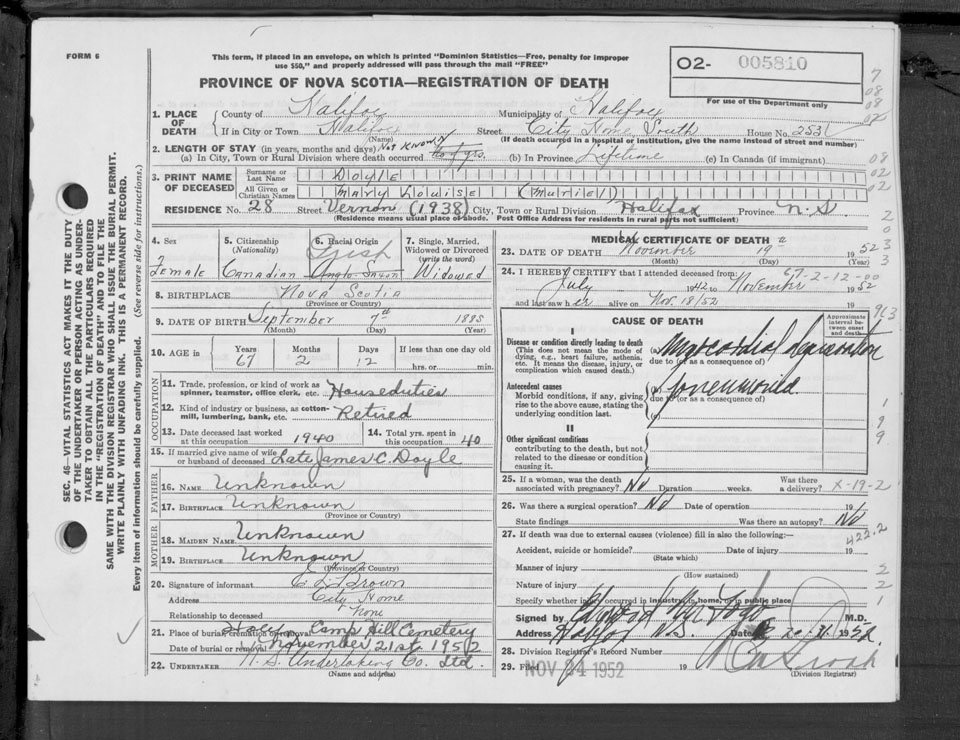 FORM 6
This form, if placed in an envelope, on which is printed "Dominion Statistics—Free, penalty for improper
use $50," and properly addressed will pass through the mail "FREE"
PROVINCE OF NOVA SCOTIA—REGISTRATION OF DEATH
O2- 005810
For use of the Department only
1. PLACE OF DEATH
County of Halifax Municipality of Halifax
If in City or Town Halifax Street City Home, South House No. 253
(Name) (If death occurred in a hospital or institution, give the name instead of street and number)
2. LENGTH OF STAY (in years, months and days) Not Known
(a) In City, Town or Rural Division where death occurred yrs. (b) In Province Lifetime (c) In Canada (if immigrant)
3. PRINT NAME OF DECEASED
Surname or Last Name Doyle
All Given or Christian Names Mary Louise (Muriel)
RESIDENCE No. 28 Street Vernon (1938) City, Town or Rural Division Halifax Province N.S
(Residence means usual place of abode. Post Office Address for residents in rural parts not sufficient)
4. Sex
Female
5. Citizenship
(Nationality)
Canadian
6. Racial Origin
Irish
Anglo-Saxon
7. Single, Married,
Widowed or Divorced
(write the word)
Widowed
8. BIRTHPLACE Nova Scotia
(Province or Country)
9. DATE OF BIRTH September 7th 1885
(Month) (Day) (Year)
10. AGE in Years Months Days If less than one day old
67 2 12 hrs. or min.
OCCUPATION
11. Trade, profession, or kind of work as
spinner, teamster, office clerk, etc. Houseduties
12. Kind of industry or business, as cotton-
mill, lumbering, bank, etc. Retired
13. Date deceased last worked
at this occupation 1940
14. Total yrs. spent in
this occupation 40
15. If married give name of wife
or husband of deceased Late James C. Doyle
FATHER
16. NAME Unknown
17. BIRTHPLACE Unknown
(Province or Country)
MOTHER
18. MAIDEN NAME Unknown
19. BIRTHPLACE Unknown
(Province or Country)
20. Signature of informant C L Brown
Address City Home
Relationship to deceased None
21. Place of burial, cremation or removal Camp Hill Cemetery
Date of burial or removal November 21st 1952
22. UNDERTAKER N. S. Undertaking Co. Ltd.
(Name and address)
MEDICAL CERTIFICATE OF DEATH
23. DATE OF DEATH November 19th 1952
(Month) (Day) (Year)
24. I HEREBY CERTIFY that I attended deceased from: 67-2-12-00
July 1942 to November 1952
and last saw her alive on Nov. 18/52 19
CAUSE OF DEATH
Approximate
interval between
onset
and death
I
Disease or condition directly leading to death
(This does not mean the mode of
dying, e.g., heart failure, asthenia,
etc. It means the disease, injury, or
complication which caused death.)
(a) Myocardial degeneration
due to (or as a consequence of)
Antecedent causes
Morbid conditions, if any, giving
rise to the above cause, stating the
underlying condition last.
due to (or as a consequence of)
II
Other significant conditions
contributing to the death, but not
related to the disease or condition
causing it.
25. If a woman, was the death
associated with pregnancy? No Duration weeks. Was there
a delivery? X-19-2
26. Was there a surgical operation? No Date of operation 19
State findings Was there an autopsy? No
422.2
27. If death was due to external causes (violence) fill in also the following:—
Accident, suicide or homicide? Date of injury 19
(State which)
Manner of injury
(How sustained)
Nature of injury
Specify whether injury occurred in industry, in home, or in public place
Signed by M.D.
Address Halifax N.S. Date 1952
28. Division Registrar's Record Number
29. Filed NOV 24 1952 19
(Division Registrar)
SEC. 46—VITAL STATISTICS ACT MAKES IT THE DUTY
OF THE UNDERTAKER OR PERSON ACTING AS UNDER-
TAKER TO OBTAIN ALL THE PARTICULARS REQUIRED
IN THE "REGISTRATION OF DEATH" AND TO FILE THE
SAME WITH THE DIVISION REGISTRAR WHO SHALL ISSUE THE BURIAL PERMIT.
WRITE PLAINLY WITH UNFADING INK. THIS IS A PERMANENT RECORD.
Every item of information should be carefully supplied. (See reverse side for instructions.)